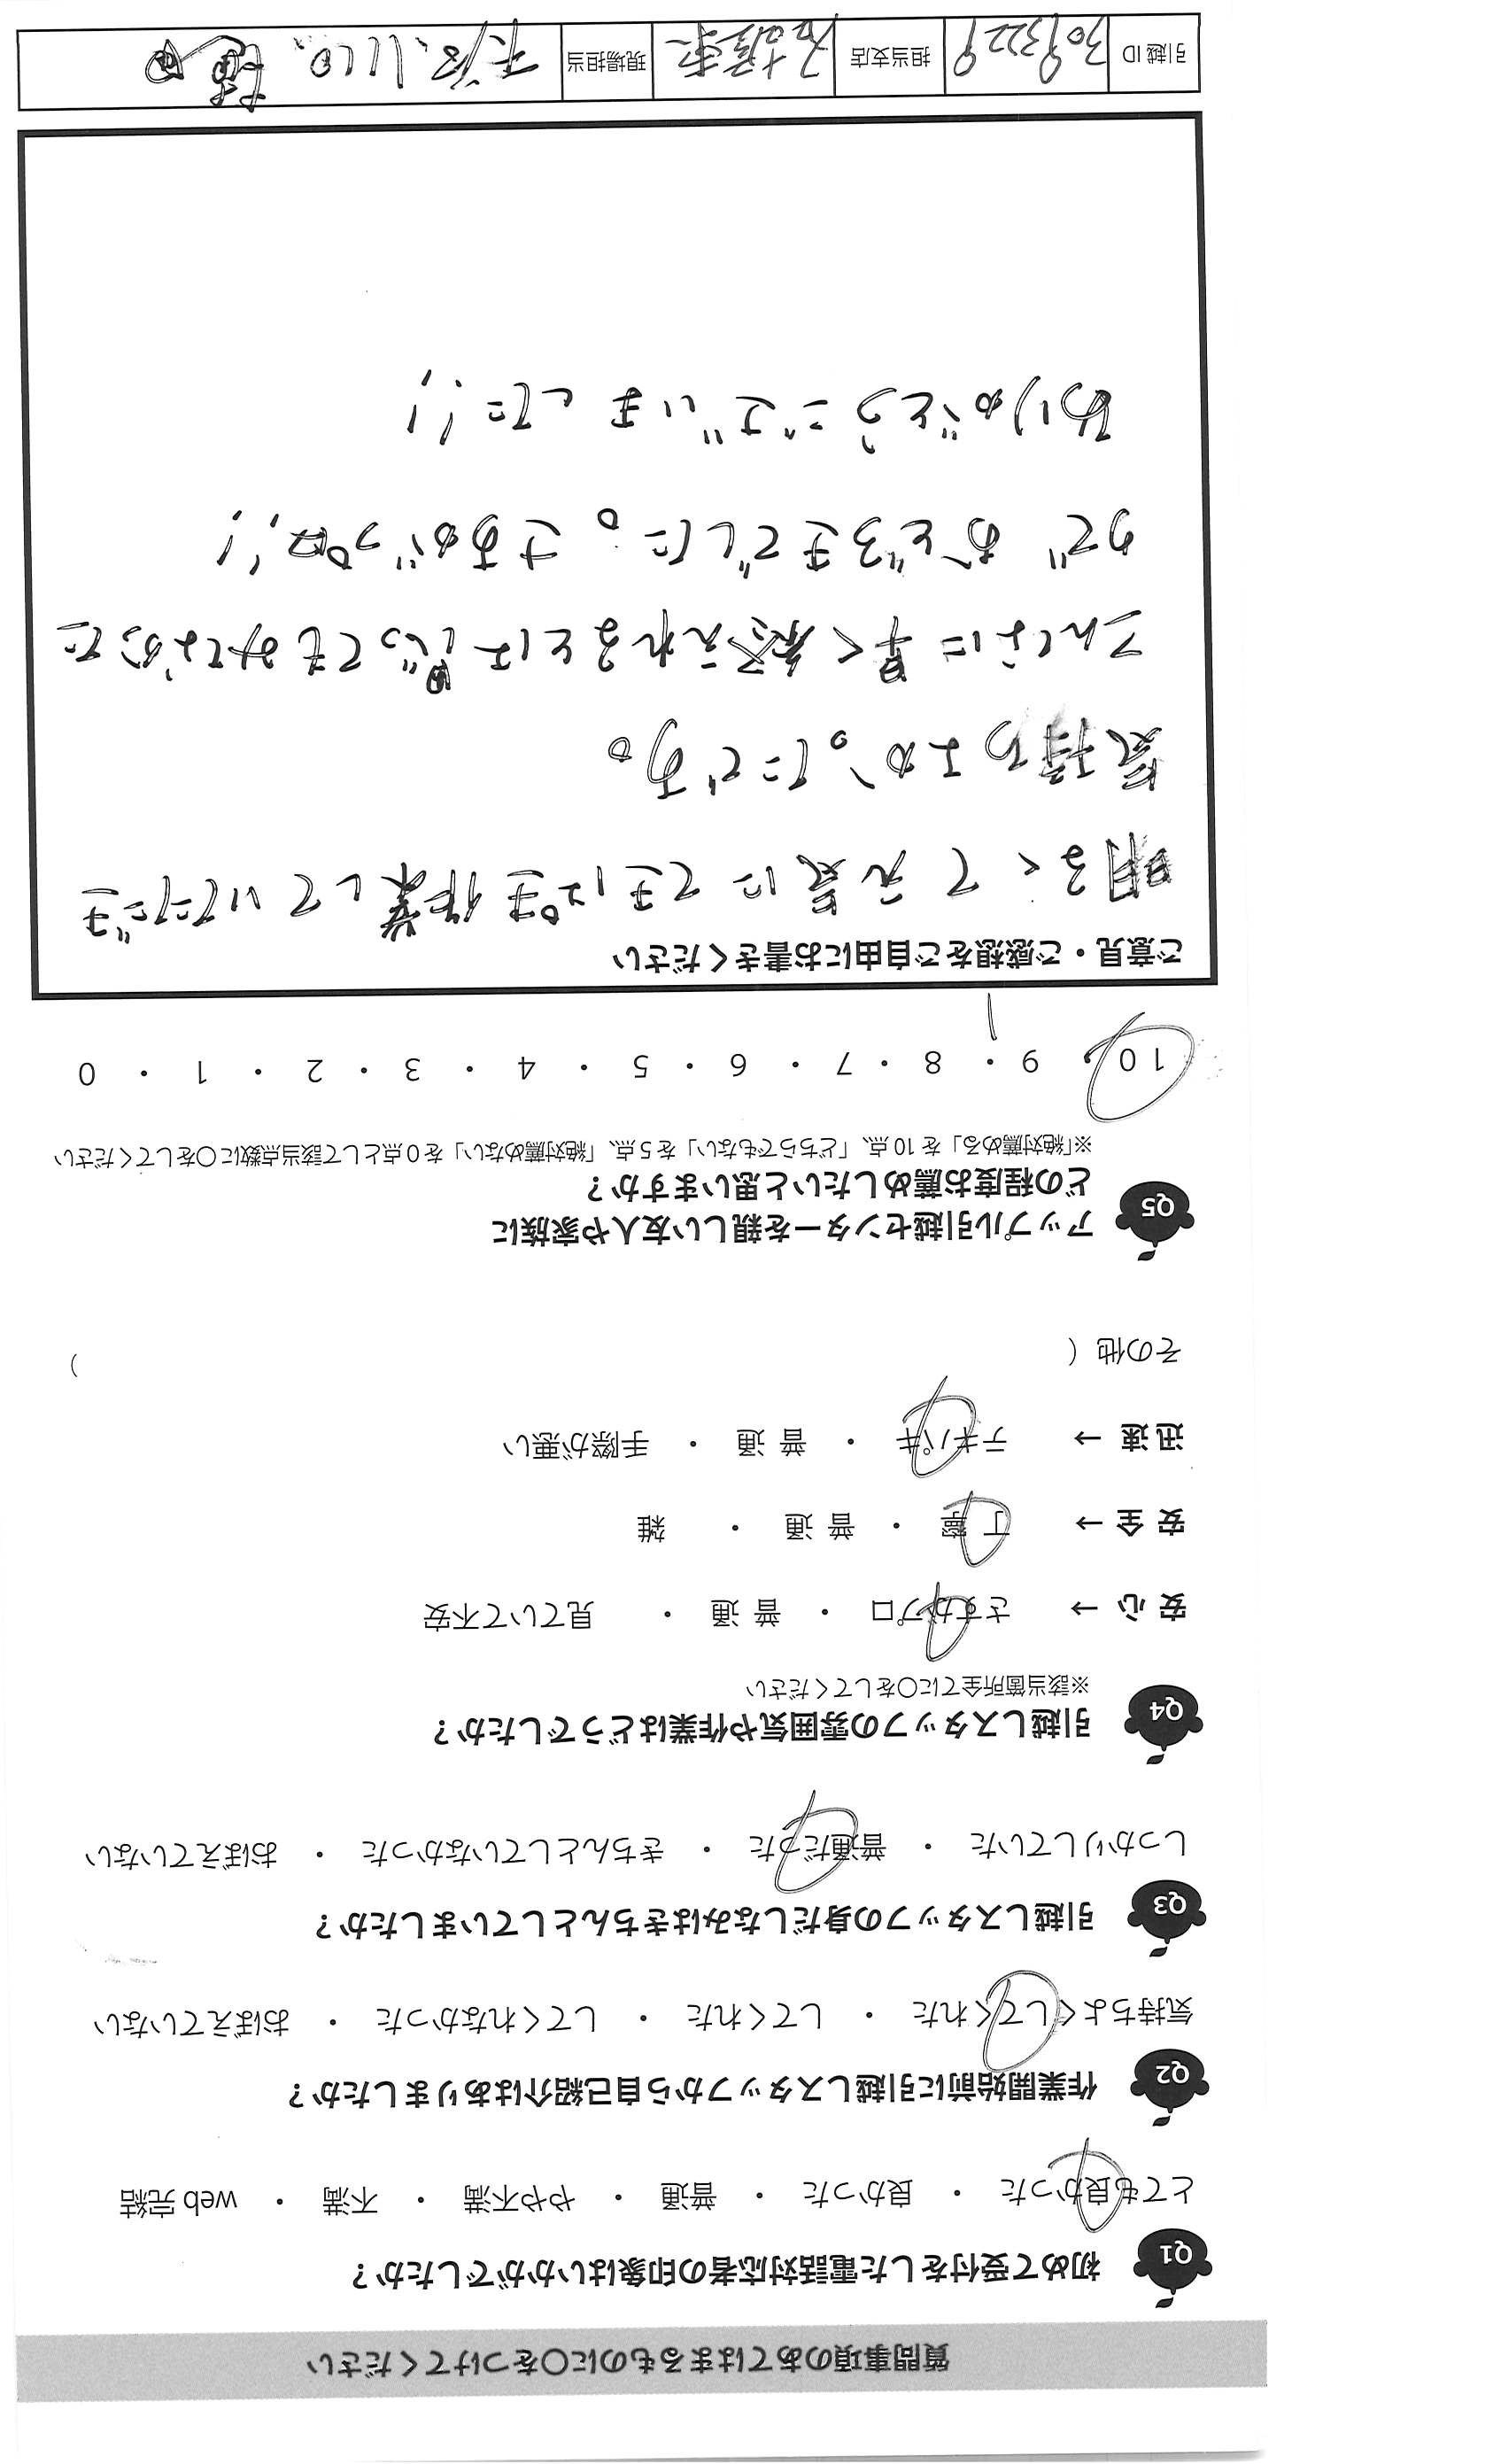 質問事項のあてはまるものに〇をつけてください
Q1 初めて受付をした電話対応者の印象はいかがでしたか？
とても良かった ・ 良かった ・ 普通 ・ やや不満 ・ 不満 ・ web 完結
Q2 作業開始前に引越しスタッフから自己紹介はありましたか？
気持ちよくしてくれた ・ してくれた ・ してくれなかった ・ おぼえていない
Q3 引越しスタッフの身だしなみはきちんとしていましたか？
しっかりしていた ・ 普通だった ・ きちんとしていなかった ・ おぼえていない
Q4 引越しスタッフの雰囲気や作業はどうでしたか？
※該当箇所全てに〇をしてください
安心 → さすがプロ ・ 普通 ・ 見ていて不安
安全 → 丁寧 ・ 普通 ・ 雑
迅速 → テキパキ ・ 普通 ・ 手際が悪い
その他（ ）
Q5 アップル引越センターを親しい友人や家族に
どの程度お薦めしたいと思いますか？
※「絶対薦める」を 10 点、「どちらでもない」を 5 点、「絶対薦めない」を 0 点として該当点数に〇をしてください
10 ・ 9 ・ 8 ・ 7 ・ 6 ・ 5 ・ 4 ・ 3 ・ 2 ・ 1 ・ 0
ご意見・ご感想をご自由にお書きください
明るくて元気にてきぱき作業していただき
気持ちよかったです。
こんなに早く終えれるとは思ってもみなかった
ので おどろきでした。さすがプロ!!
ありがとうございました!!
引越 ID 3093229 担当支店 名揖東 現場担当